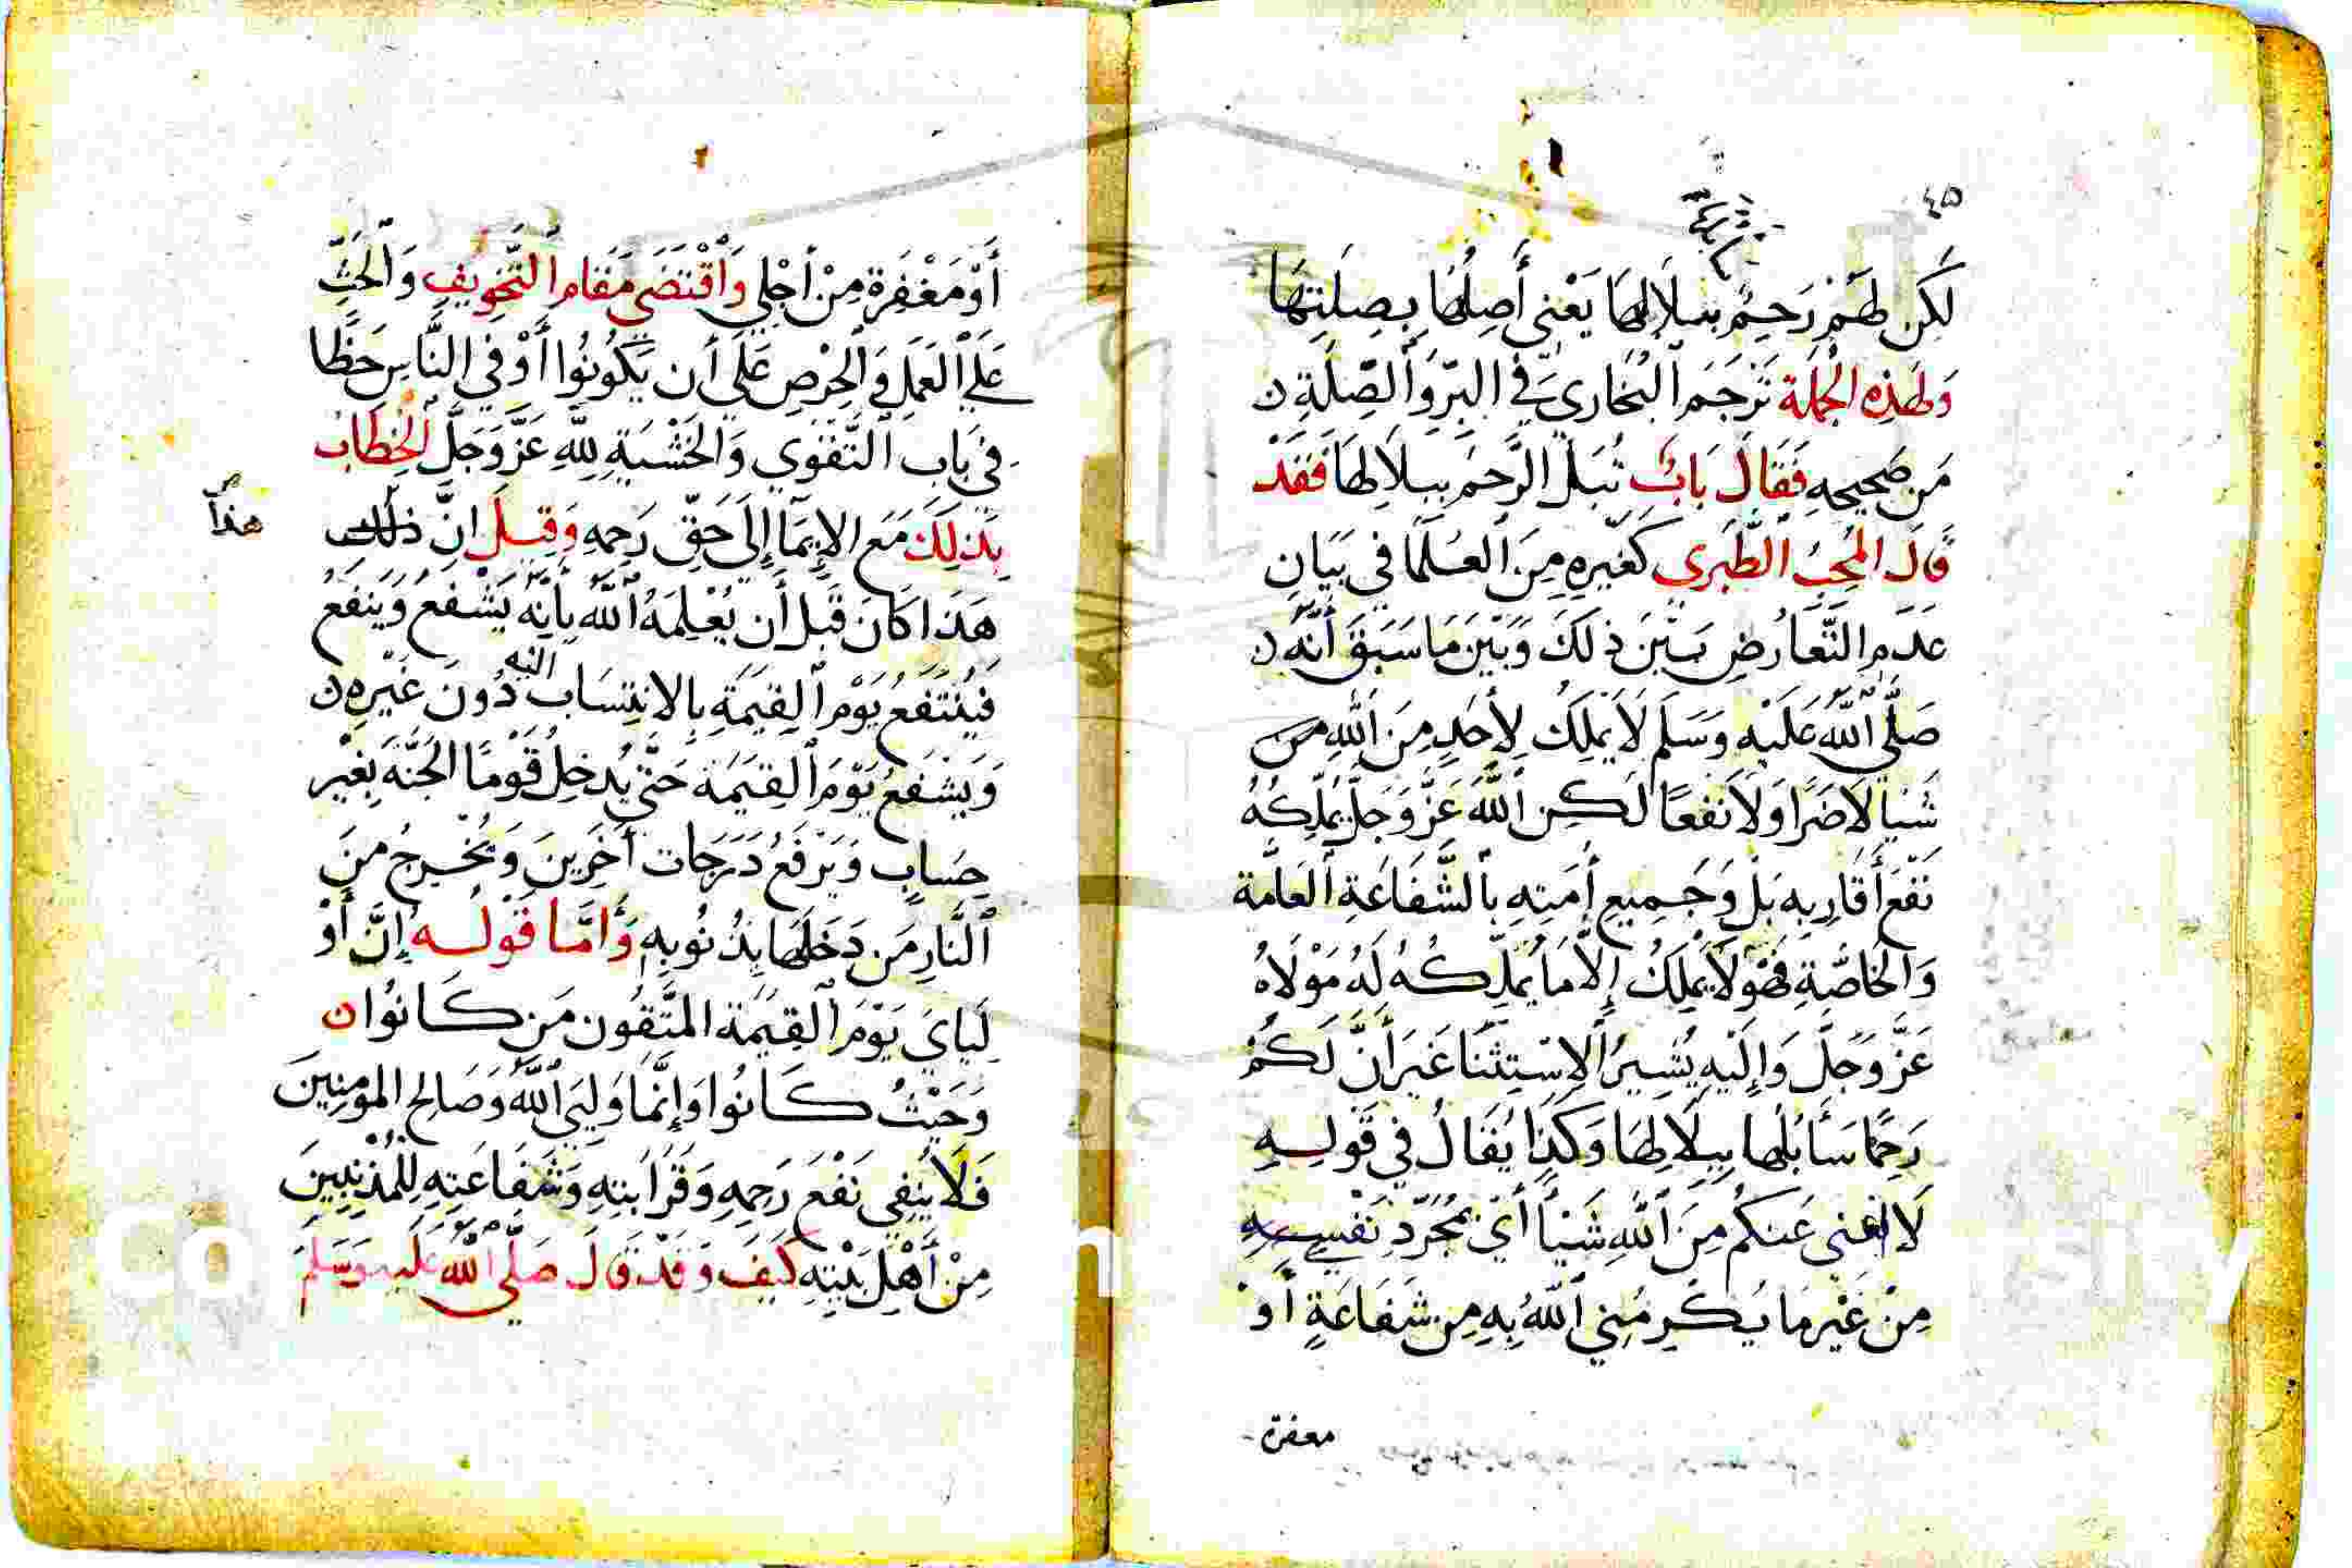 ٤٥
سابلها
لَكِن لَهُمْ رَحِمٌ ببلَالِهَا يَعْنِي أَصِلُهَا بِصِلَتِهَا
وَلِهَذِهِ الجُملَة تَرْجَمَ البُخَارِي فِي البِرِّ وَالصِّلَةِ ن
مَن صَحِيحِهِ فَقَالَ بَابٌ تُبَلُّ الرَّحِمُ بِبلَالِهَا فَقَدْ
قَالَ المُحِبُ الطَّبَرِي كَغَيرِهِ مِنَ العُلَمَا فِي بَيَانِ
عَدَمِ التَّعَارُضِ بَيْنَ ذلكَ وَبَيْنَ مَا سَبَقَ أَنَّهُ ن
صَلَّى اللَّهُ عَلَيْهِ وَسَلَّمَ لَا يَمْلِكُ لِأَحَدٍ مِنَ اللَّهِ من
شَيْيا لَا ضَرًا وَلَا نَفْعًا لَكِنِ اللَّهُ عَزَّ وَجَلَّ يُمَلِّكُهُ
نَفْعَ أَقَارِبِهِ بَلْ وَجَمِيعِ أُمَّتِهِ بِالشَّفَاعَةِ العَامَّة
وَالخَاصَّةِ فَهُوَ لَا يَمْلِكُ إِلَّا مَا يُمَلِّكُهُ لَهُ مَوْلَاهُ
عَزَّ وَجَلَّ وَإِلَيْهِ يُشِيرُ الِاسْتِثْنَا غَيرَ أَنَّ لَكُمْ
رَحِمًا سَأَبُلُّهَا بِبِلَالِهَا وَكَذَا يُقَالُ فِي قَولِهِ
لَا اغنِي عَنكُم مِنَ اللَّهِ شَيْأً أَيْ بمُجَرَّدِ نَفْسِي
مِنْ غَيْرِ مَا يُكْرِمُنِي اللَّهُ بِهِ مِن شَفَاعَةٍ أَوْ
مغفرة
أَوْ مَغْفِرَةٍ مِنْ أَجْلِي وَاقْتَضَى مَقَامُ التَّخوِيفِ وَالحَثِّ
عَلَى العَمَلِ وَالحِرْصِ عَلَى أَن يَكُونُوا أَوْفَى النَّاسِ حَظًّا
فِي بَابِ التَّقْوَى وَالخَشْيَةِ لِلَّهِ عَزَّ وَجَلَّ الخِطَابُ
بِذلِكَ مَعَ الإِيمَا إِلَى حَقِّ رَحِمِهِ وَقِيلَ إِنَّ ذلك
هذا صح
هَذَا كَانَ قَبْلَ أَن يُعْلِمَهُ اللَّهُ بِأَنَّهُ يَشْفَعُ وَيَنْفَعُ
فَيُنْتَفَعُ يَوْمَ القِيَمَةِ بِالانتِسَابِ اليه دُونَ غَيْرِهِ ن
وَيَشْفَعُ يَوْمَ القِيَمَة حَتَّى يُدخِلُ قَوْمًا الجَنَّةَ بِغَيْرِ
حِسَابٍ وَيَرْفَعُ دَرَجَاتِ آخَرِينَ وَيُخْرِجُ مِنَ
النَّارِ مَن دَخَلَهَا بِذُنُوبِهِ وَأَمَّا قَوْلُهُ إِنَّ أَوْ
لِيَايَ يَوْمَ القِيَمَة المُتَّقُون مَن كَانُوا ن
وَحَيْثُ كَانُوا وَإِنَّمَا وَلِيَي اللَّهُ وَصَالِحُ المُومِنِينَ
فَلَا يَنْفِي نَفْعَ رَحِمِهِ وَقَرَابَتِهِ وَشَفَاعَتِهِ لِلْمُذْنِبِينَ
مِنْ أَهْلِ بَيْتِهِ كَيْفَ وَقَدْ قَالَ صَلَّى اللَّهُ عَلَيهِ وَسَلَّمَ